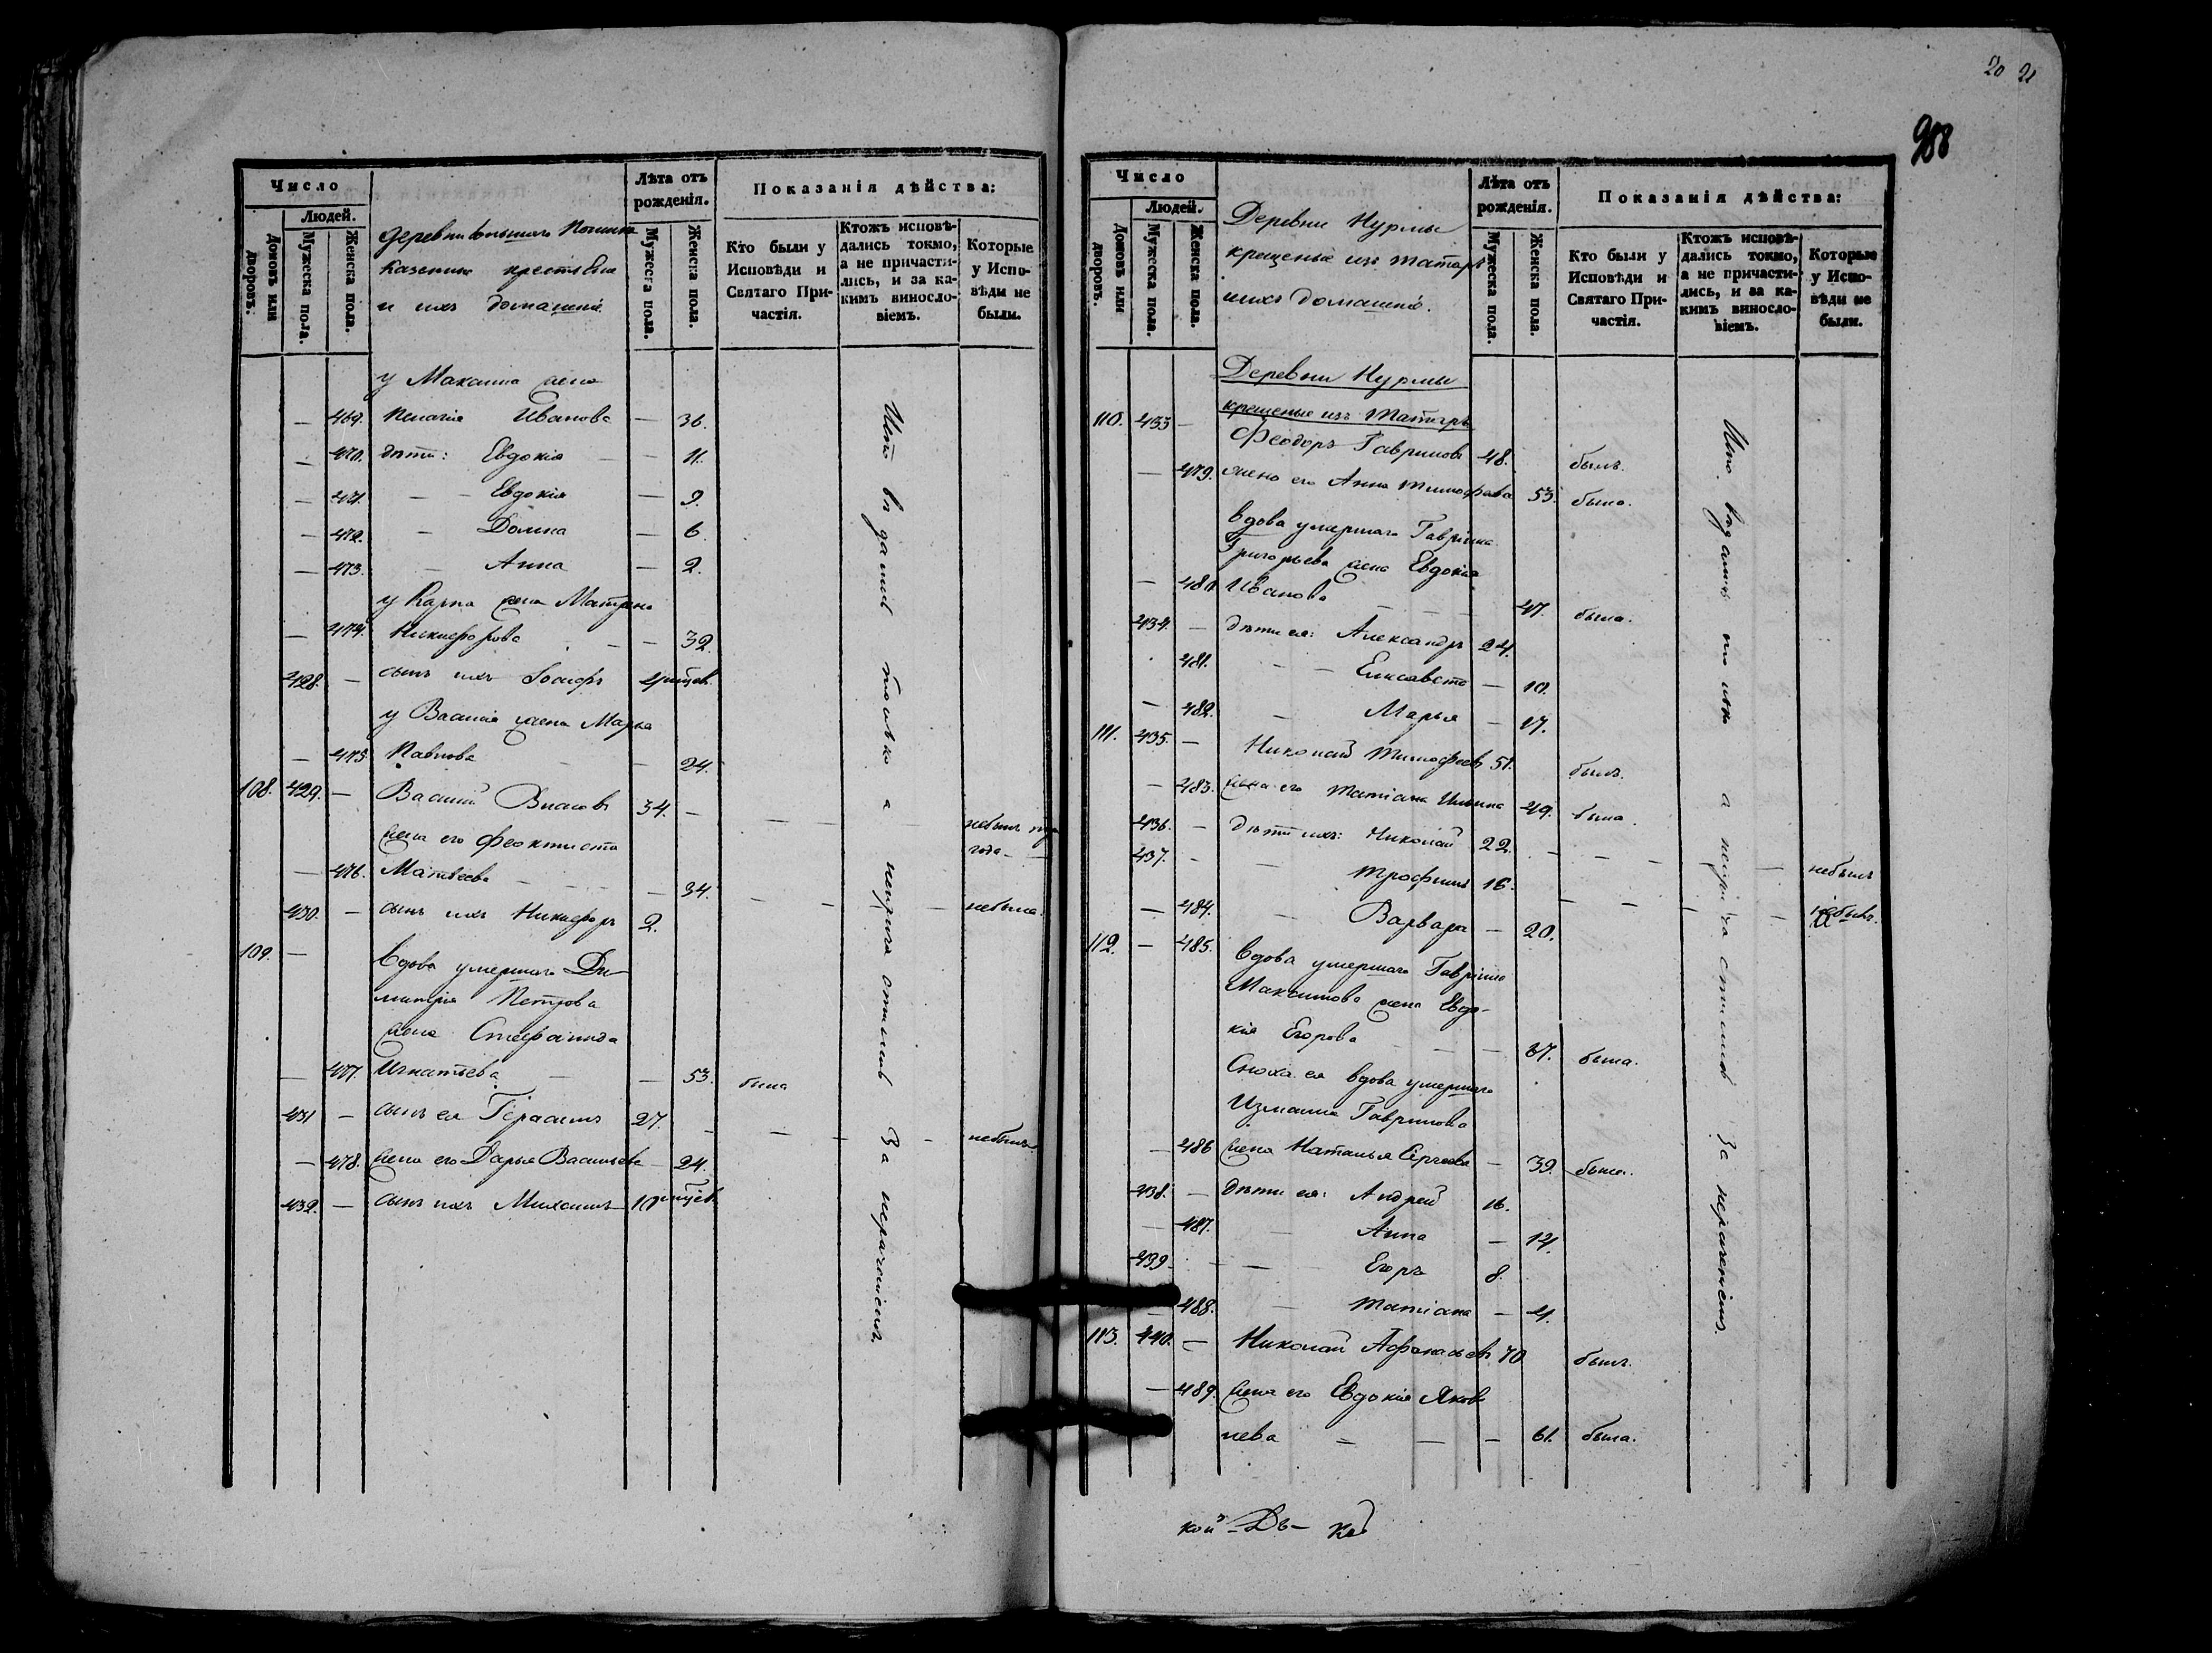 20 21
988
Число
Людей.
Домовъ или дворовъ.
Мужеска пола.
Женска пола.
Деревни Большаго Починка
казенные крестьяне
и ихъ домашніе.
Лѣта отъ рожденія.
Мужеска пола.
Женска пола.
Показанія дѣйства:
Кто были у Исповѣди и Святаго Причастія.
Ктожъ исповѣдались токмо, а не причастились, и за какимъ винословіемъ.
Которые у Исповѣди не были.
у Максима жена
— 469. Пелагія Иванова — 36.
— 470. дѣти: Евдокія — 11.
— 471. — Евдокія — 9.
— 472. — Домна — 6.
— 473. — Анна — 2.
у Карпа жена Матрена
— 474. Никифорова — 32.
428. — сынъ ихъ Іосифъ
у Василія жена Марья
— 475. Павлова — 24.
108. 429. — Василій Власовъ 34. — небылъ
года
жена его Феоктиста
— 476. Матвѣева — 34. — небыла.
430. — сынъ ихъ Никифоръ 2.
109. — вдова умершаго Ди-
митрія Петрова
жена Стефанида
— 477. Игнатьева — 53. была
431 — сынъ ея Герасимъ 27. — небылъ
— 478. жена его Дарья Васильева — 24.
432. — сынъ ихъ Михаилъ
только а непричастились за нерачениемъ.
Число
Людей.
Домовъ или дворовъ.
Мужеска пола.
Женска пола.
Деревни Нурмы
крещеные изъ татаръ
и ихъ домашніе.
Лѣта отъ рожденія.
Мужеска пола.
Женска пола.
Показанія дѣйства:
Кто были у Исповѣди и Святаго Причастія.
Ктожъ исповѣдались токмо, а не причастились, и за какимъ винословіемъ.
Которые у Исповѣди не были.
Деревни Нурмы
крещеные изъ Татаръ
110. 433 — Феодоръ Гавриловъ 48. былъ.
— 479. жена его Анна Тимофеева 53. была.
вдова умершаго Гаврила
Григорьева жена Евдокія
— 480. Иванова — 47. была.
434. — дѣти ея: Александръ 24.
481. — Елисавета — 10.
— 482. — Марья — 17.
111. 435. — Николай Тимофеевъ 51. былъ.
— 483. жена его Татіана Ильина 49. была.
436. — дѣти ихъ: Николай 22. — небылъ
437. — Трофимъ 16. — небылъ.
— 484. — Варвара — 20.
112. — 485. вдова умершаго Гаврила
Максимова жена Евдо-
кія Егорова — 37. была.
Сноха ея вдова умершаго
Измаила Гаврилова
— 486 жена Наталья Сергеева — 39. была.
438. — дѣти ея: Андрей 16.
— 487. — Анна — 14.
439 — Егоръ 8.
— 488. — Татіана — 4.
113. 440. — Николай Афанасьевъ 70 былъ.
— 489. жена его Евдокія Яков
лева — 61. была.
только а непричастились за нерачениемъ.
кой — Дь —